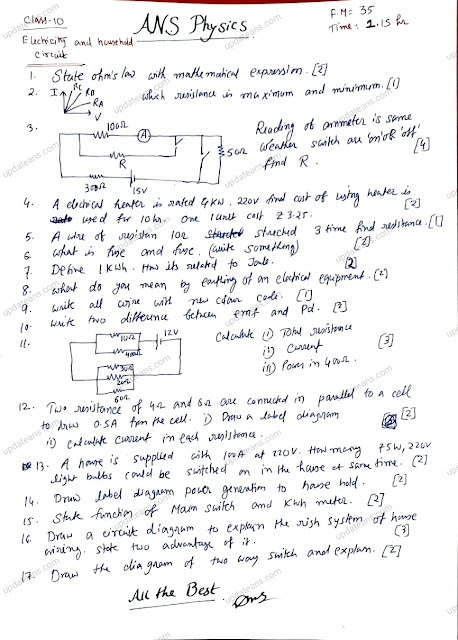 Class-10
ANS Physics
F.M= 35
Time: 1.15 hr
Electricity and household
Circuit
1. State ohm's law with mathematical expression. [2]
2. I RC RB RA V which resistance is maximum and minimum. [1]
3. 100Ω A 50Ω R 300Ω 15V
Reading of ammeter is same
weather switch are 'on' or 'off'
find R. [4]
4. A electrical heater is rated 4kw. 220v find cost of using heater is
used for 10hr. one 1 unit cost ₹ 3.25. [2]
5. A wire of resisten 10Ω streched 3 time find redstance. [1]
6. what is fuse and fuse. (write something) [2]
7. Define 1 KWh. How its related to Joule. [2]
8. what do you mean by earthing of an electrical equipment. [2]
9. write all wire with new colour code. [1]
10. write two difference between emf and Pd. [2]
11. 10Ω 400Ω 12V 3Ω 20Ω 60Ω
Calculate i) Total resistance
ii) Current
iii) Power in 400Ω.
[3]
12. Two resistance of 4Ω and 6Ω are connected in parallel to a cell
to draw 0.5A from the cell. i) Draw a label diagram
ii) calculate current in each resistance. [2]
13. A house is supplied with 100A at 220V. How many 75W, 220V
light bulbs could be switched on in the house at same time. [2]
14. Draw label diagram power generation to house hold. [2]
15. State function of Main switch and Kwh meter. [2]
16. Draw a circuit diagram to explain the system of house
wiring. state two advantage of it. [3]
17. Draw the diagram of two way switch and explain. [2]
All the Best.
updateans.com